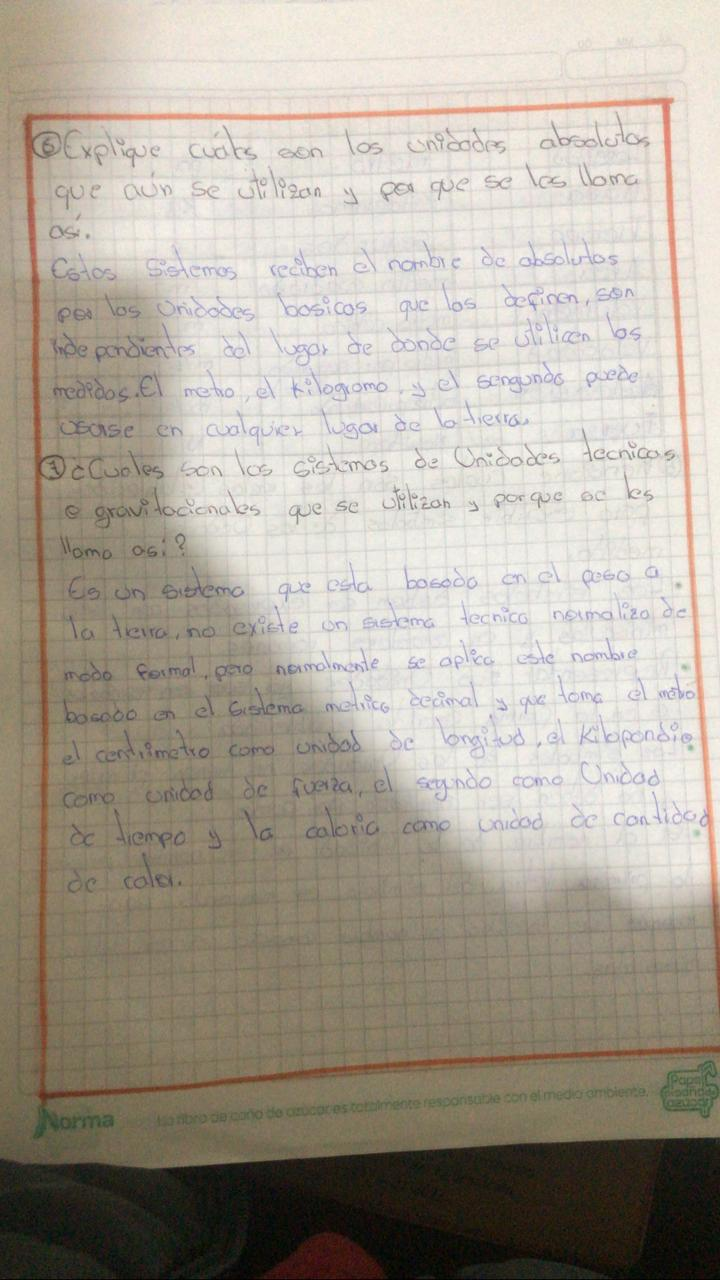 ⑥ Explique cuáles son los unidades absolutas
que aún se utilizan y por que se les llama
así.
Estos Sistemas reciben el nombre de absolutos
por los Unidades basicas que los definen, son
independientes del lugar de donde se utilicen las
medidas. El metro, el Kilogramo, y el sengundo puede
usarse en cualquier lugar de la tierra.
⑦ ¿Cuales son los sistemas de Unidades tecnicas
o gravitacionales que se utilizan y porque se les
llama asi?
Es un sistema que esta basado en el peso a
la tierra, no existe un sistema tecnico normalizo de
modo formal, pero normalmente se aplica este nombre
basado en el sistema metrico decimal y que toma el metro
el centrimetro como unidad de longitud, el Kilopondio
como unidad de fuerza, el segundo como Unidad
de tiempo y la caloria como unidad de cantidad
de calor.
Norma
fibra de caña de azúcar es totalmente responsable con el medio ambiente.